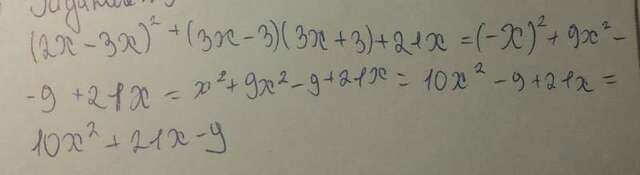 Задание
(2x-3x)² + (3x-3)(3x+3)+21x = (-x)² + 9x² -
-9 +21x = x² + 9x² - 9 + 21x = 10x² - 9 + 21x =
10x² + 21x - 9